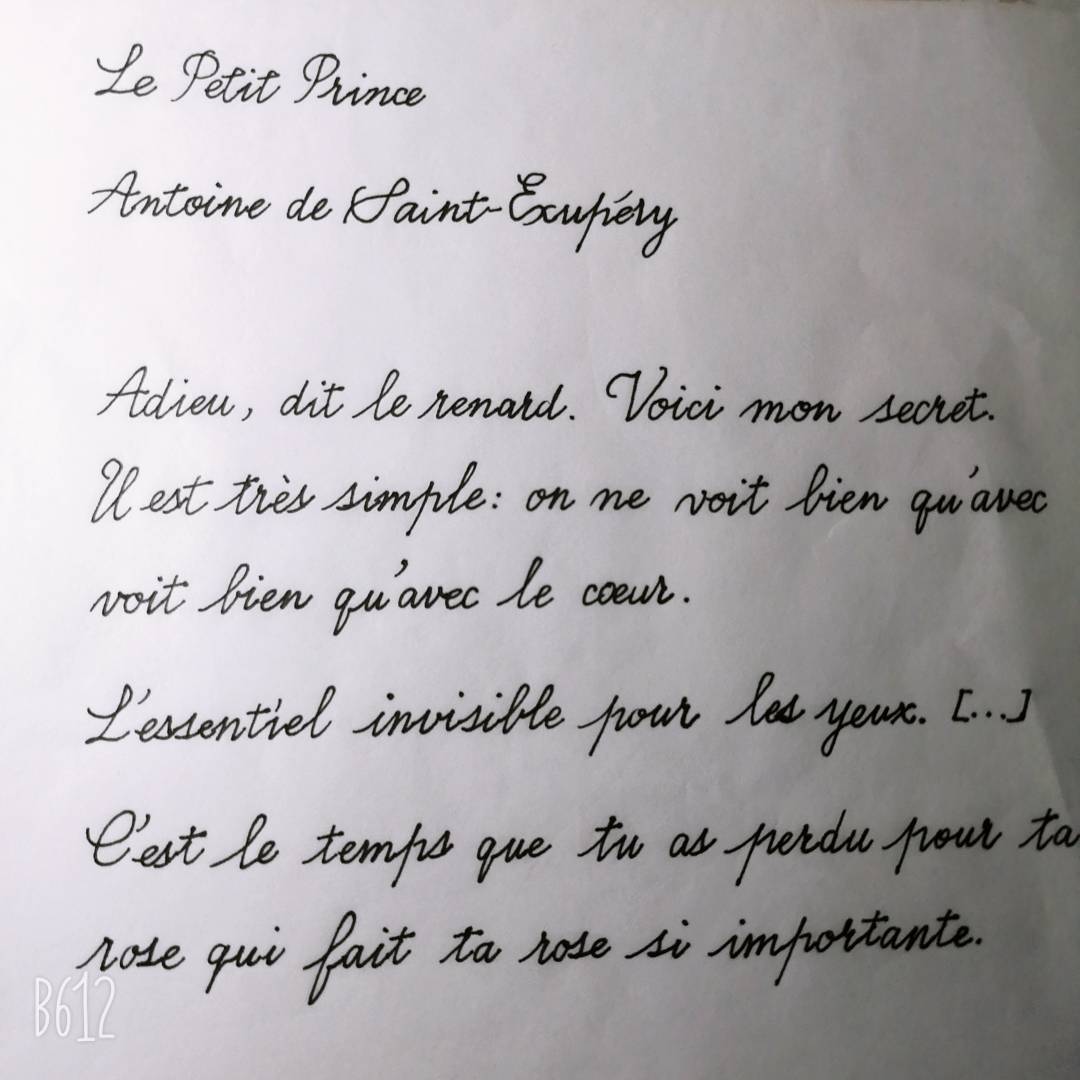 Le Petit Prince
Antoine de Saint-Exupéry
Adieu, dit le renard. Voici mon secret.
Il est très simple: on ne voit bien qu'avec
voit bien qu'avec le cœur.
L'essentiel invisible pour les yeux. [...]
C'est le temps que tu as perdu pour ta
rose qui fait ta rose si importante.
B612